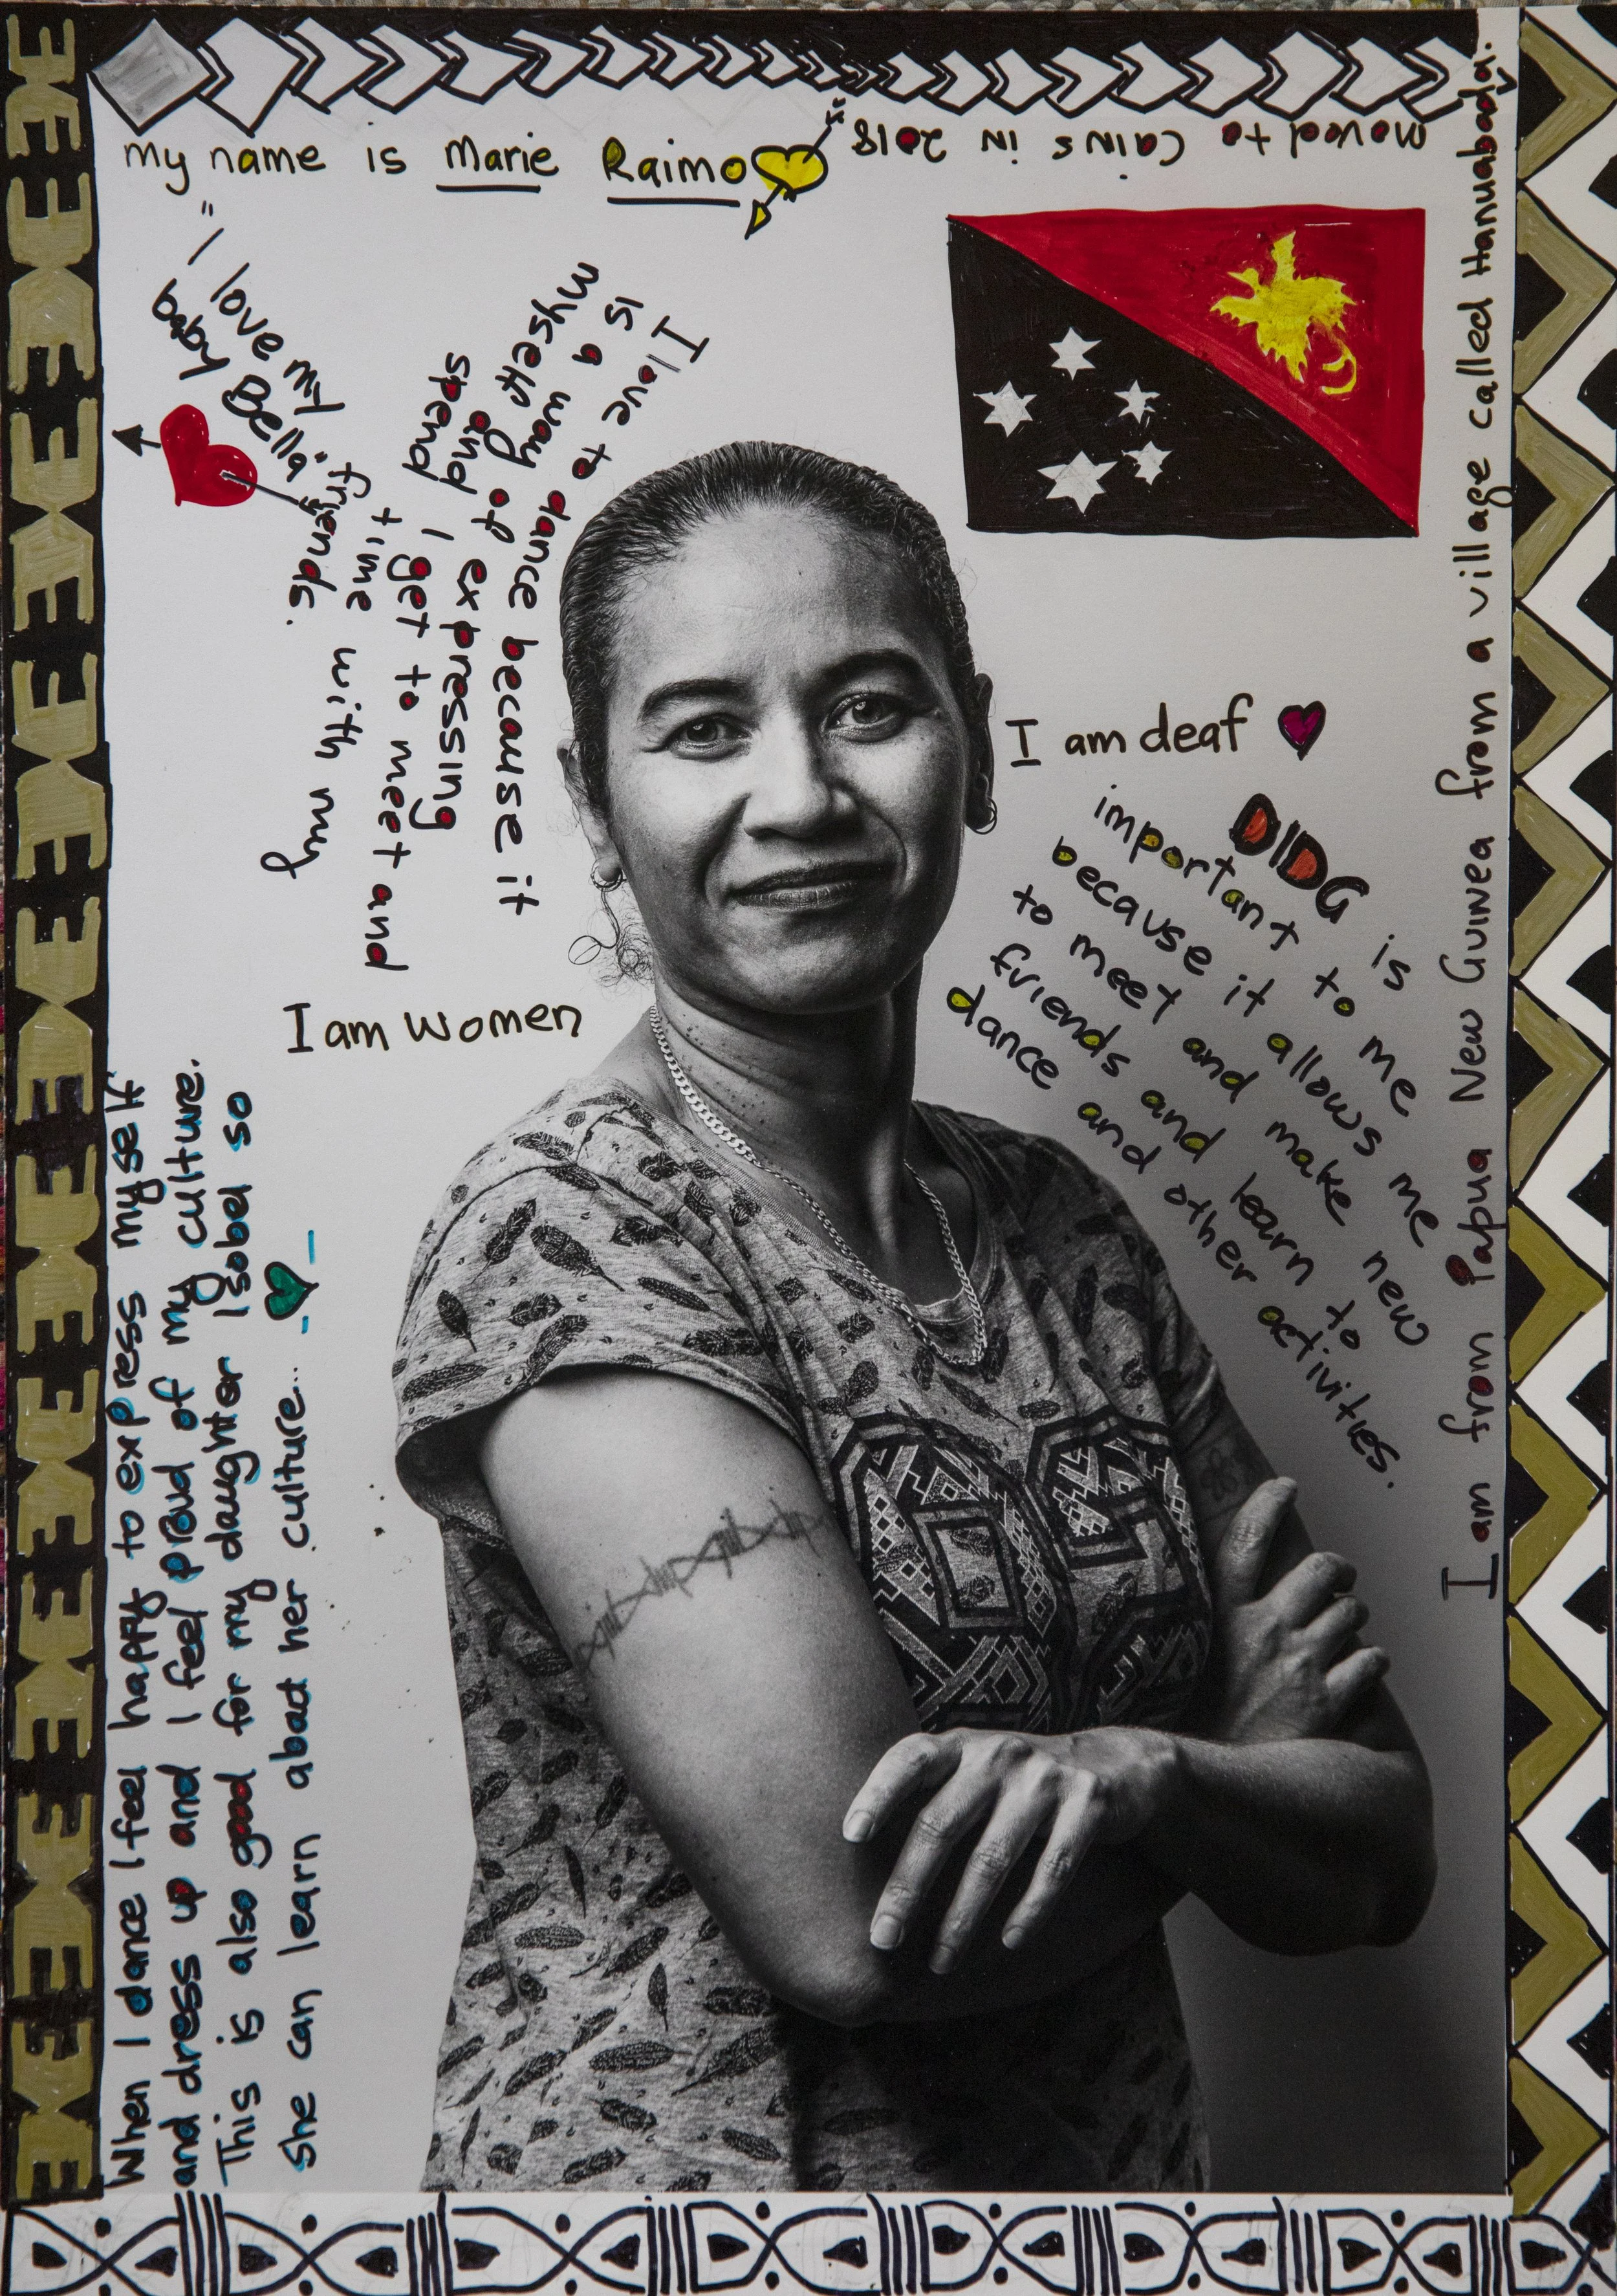 my name is Marie Raimo
moved to cains in 2018
"I love my
baby Bella"
I love to dance because it
is a way of expressing
myself and I get to meet and
spend time with my
friends.
I am women
I am deaf
DIDG is
important to me
because it allows me
to meet and make new
friends and learn to
dance and other activities.
I am from Papua New Guinea from a village called Hanuabada.
When I dance I feel happy to express myself
and dress up and I feel proud of my culture.
This is also good for my daughter Isobel so
she can learn abaut her culture...